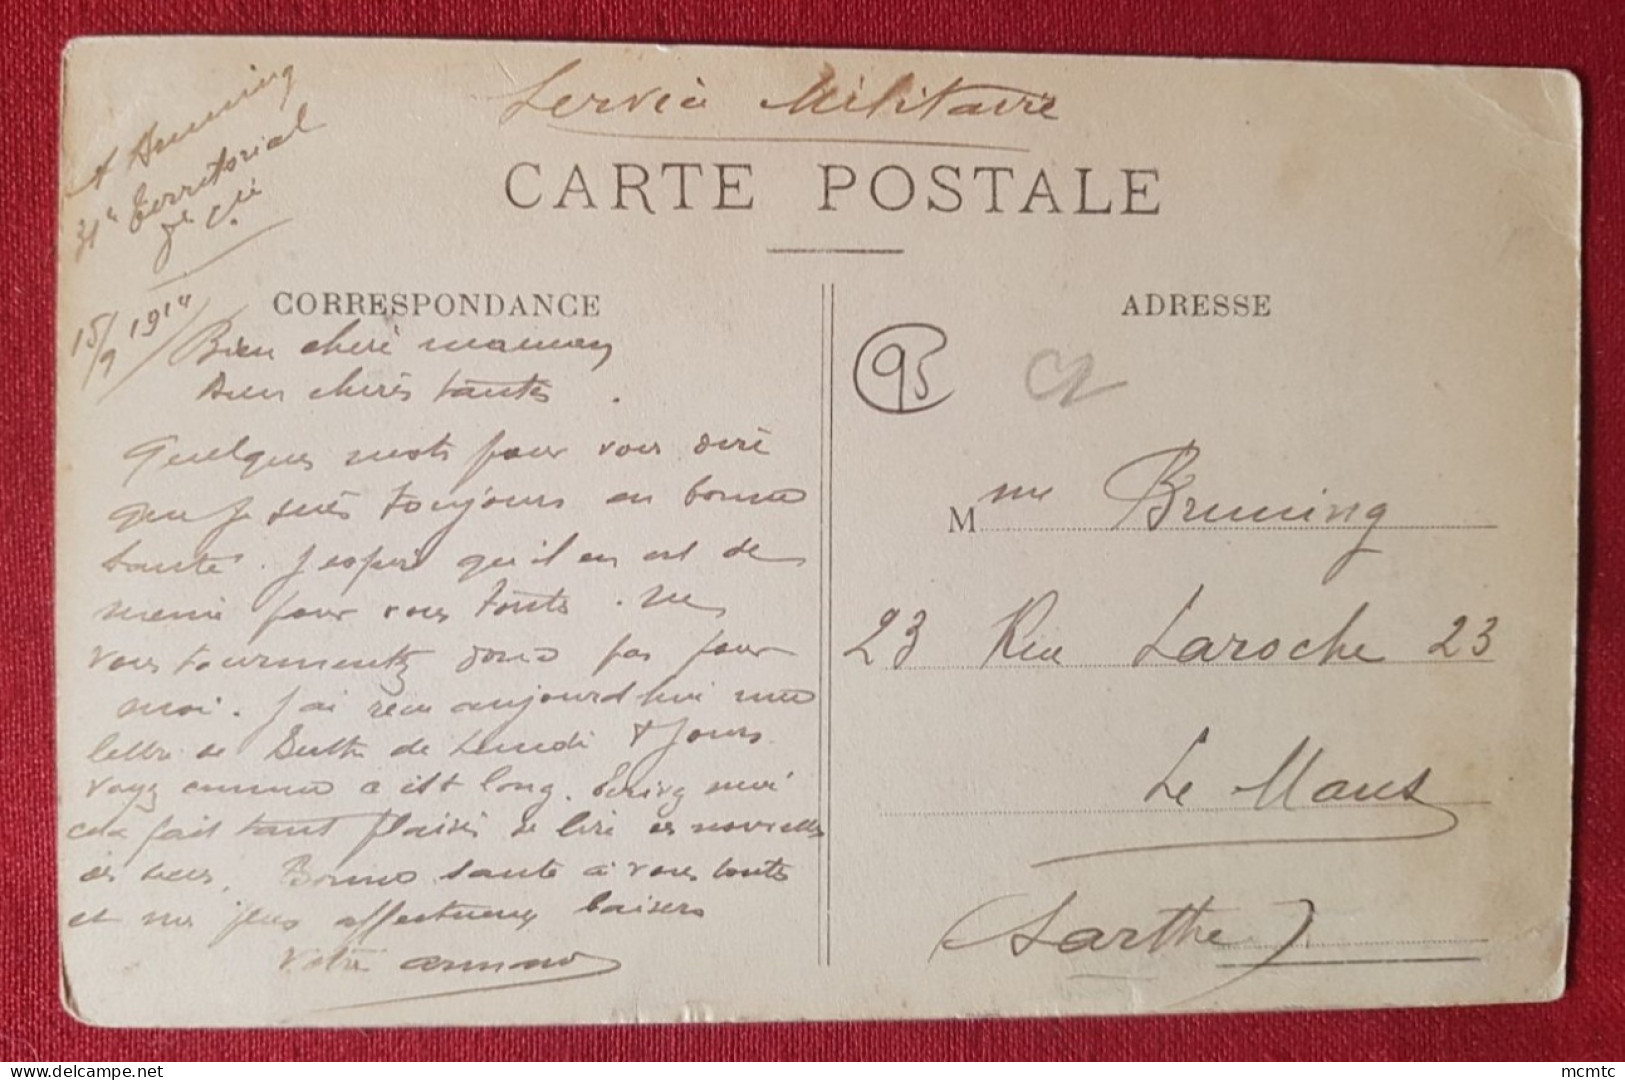 Service Militaire
A Bruning
31e Territorial
7e Cie
CARTE POSTALE
15/9 1914
CORRESPONDANCE
ADRESSE
95
Bien chère maman
Bien chères tantes.
Quelques mots pour vous dire
que je suis toujours en bonne
santé. J espère qu'il en est de
même pour vous toutes. Ne
vous tourmentez donc pas pour
moi. J'ai reçu aujourd hui une
lettre de de Lundi 8 jours
voyez comme c est long. Ecrivez moi
cela fait tant plaisir de lire des nouvelles
des siens. Bonne santé à vous toutes
et mes plus affectueux baisers
Votre Armand
Mme Bruning
23 Rue Laroche 23
Le Mans
(Sarthe)
mcmtc